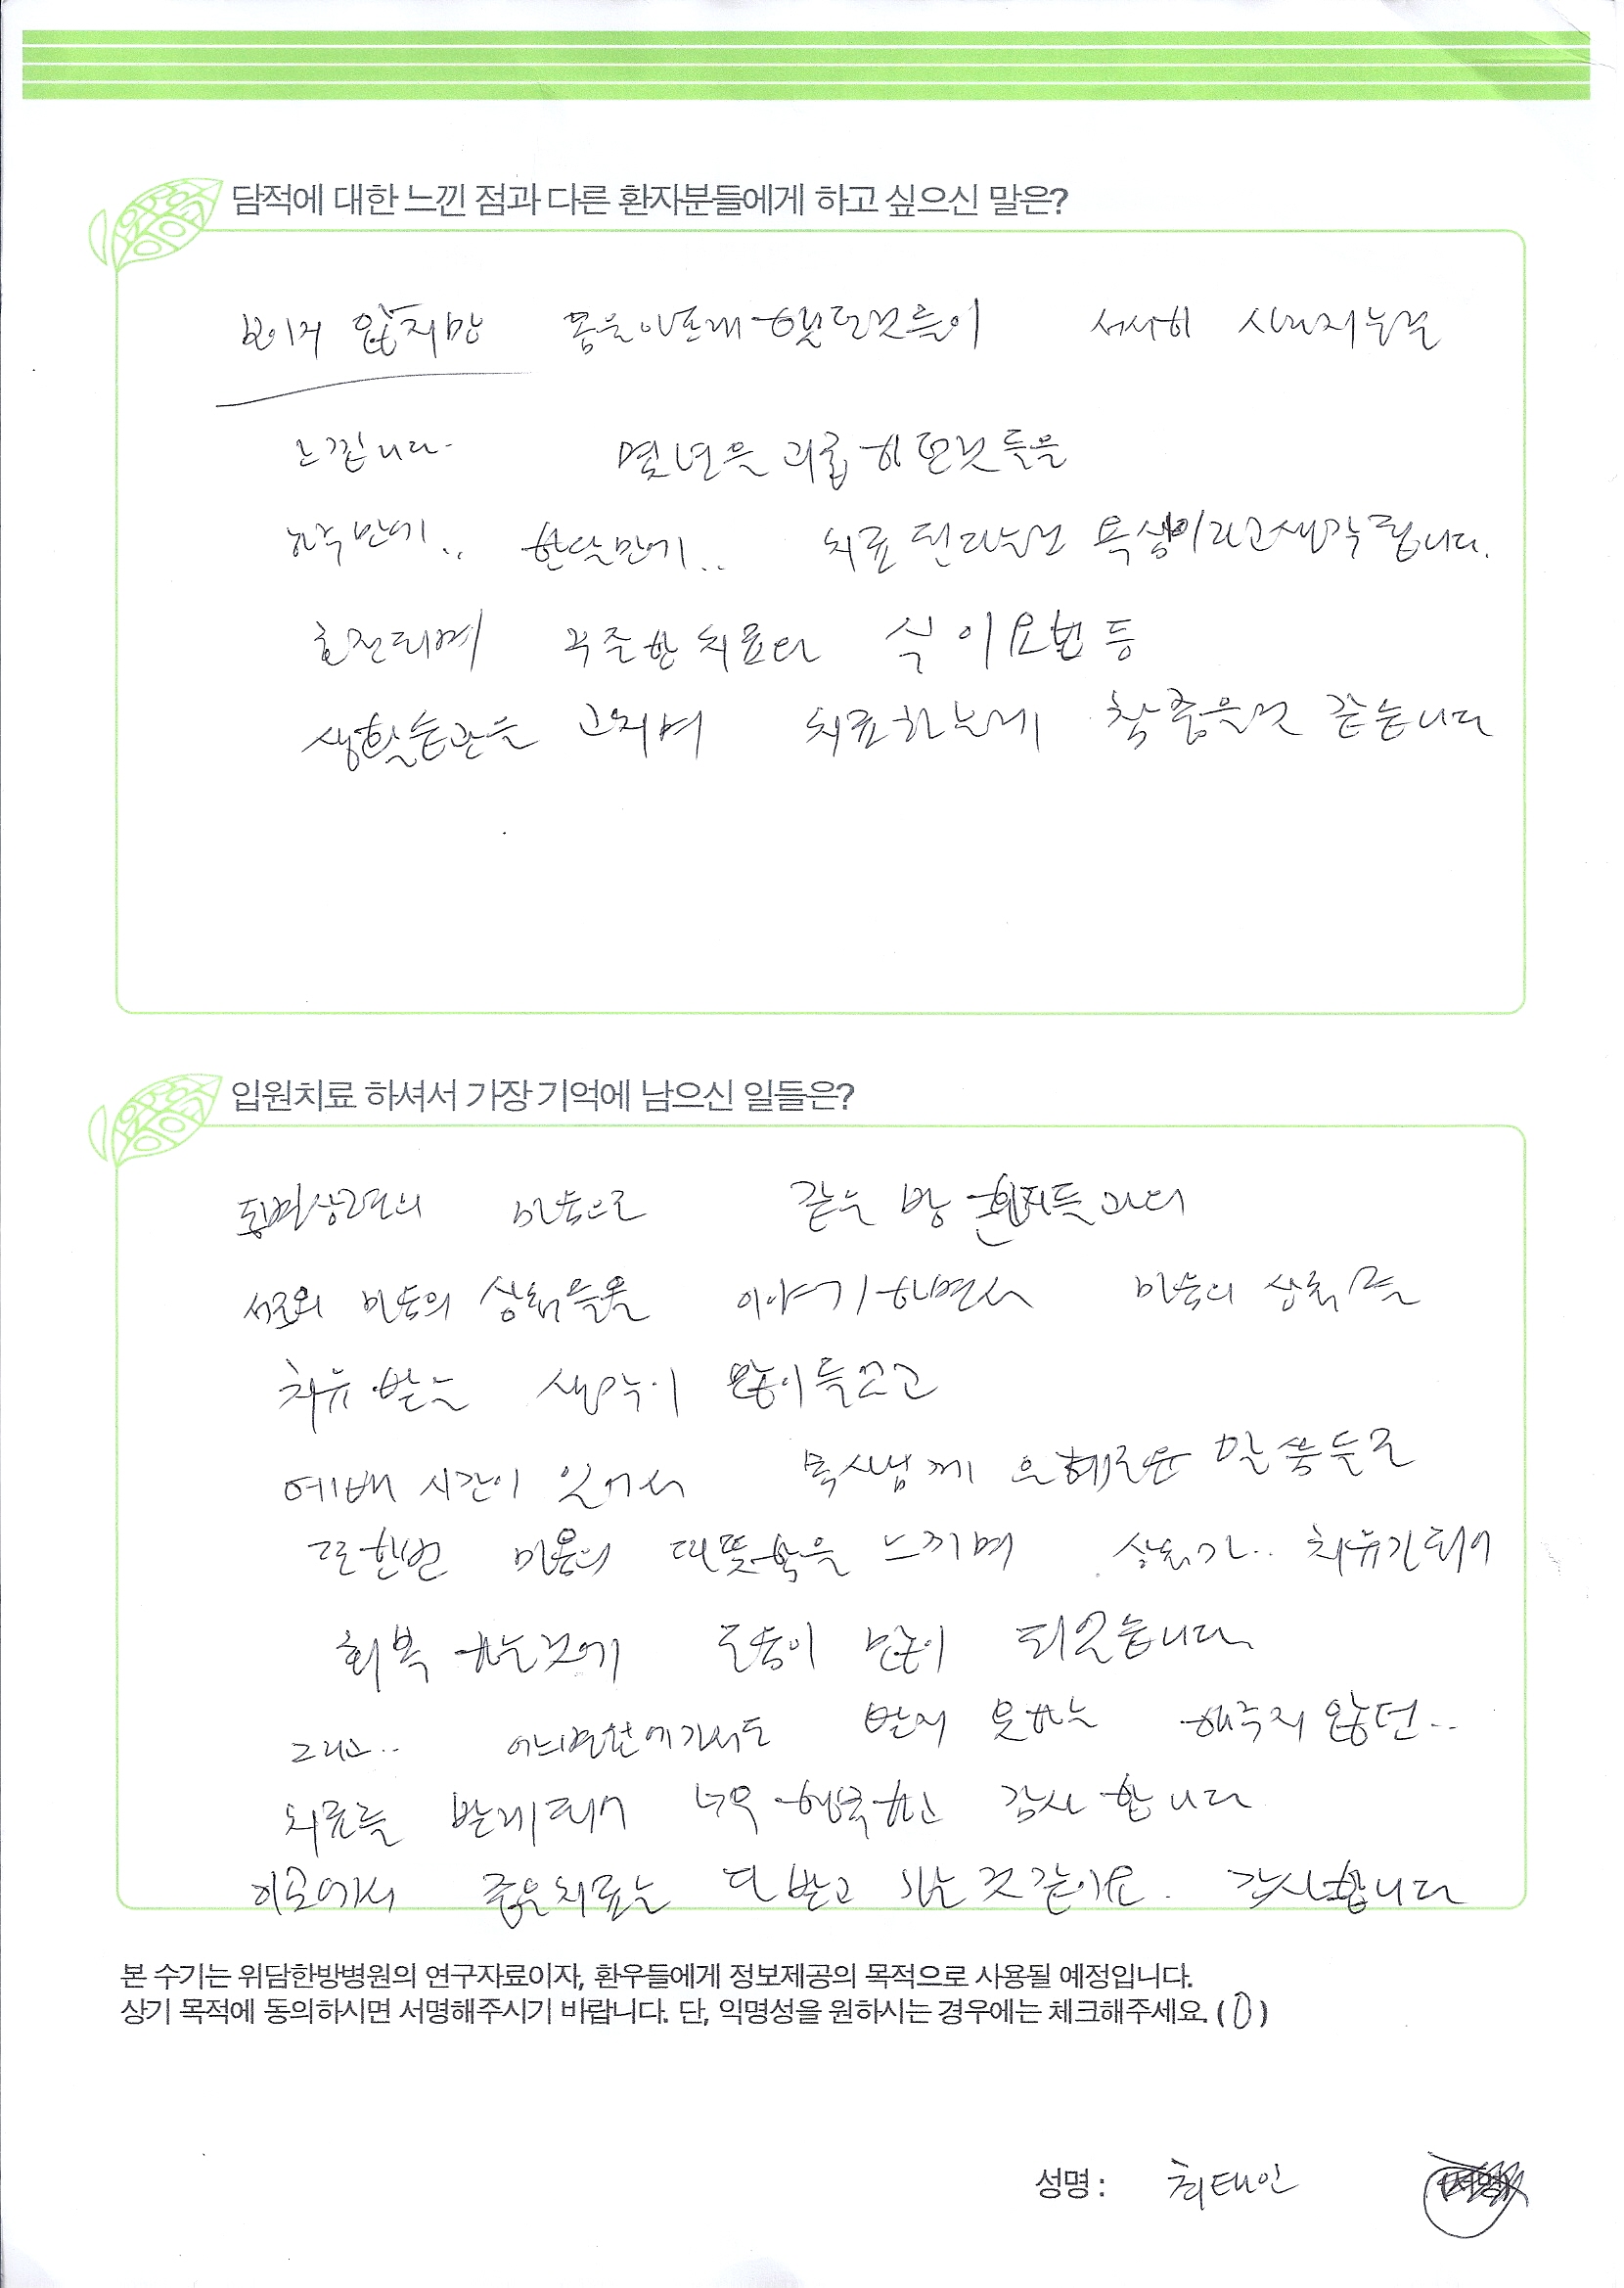 담적에 대한 느낀 점과 다른 환자분들에게 하고 싶으신 말은?
보이지 않지만 몸을 아프게 했던것들이 서서히 사라지는걸
느낍니다. 몇년을 괴롭히던것들을
하루만에.. 한달만에.. 치료 된다는건 욕심이라고 생각됩니다.
호전되며 꾸준한 치료와 식이요법 등
생활습관을 고치며 치료하는게 참 좋을것 같습니다
입원치료 하셔서 가장 기억에 남으신 일들은?
동병상련의 마음으로 같은 방 환자들과의
서로의 마음의 상처들을 이야기하면서 마음의 상처를
치유 받는 생각이 많이 들었고
예배 시간이 있어서 목사님께 은혜로운 말씀들로
또한번 마음의 따뜻함을 느끼며 상처가.. 치유가 되어
회복 하는것에 도움이 많이 되었습니다
그리고.. 어느병원에가서도 받지 못하는 해주지 않던..
치료를 받게되어 너무 행복하고 감사합니다
이곳에서 좋은치료는 다 받고 가는 것 같아요. 감사합니다
본 수기는 위담한방병원의 연구자료이자, 환우들에게 정보제공의 목적으로 사용될 예정입니다.
상기 목적에 동의하시면 서명해주시기 바랍니다. 단, 익명성을 원하시는 경우에는 체크해주세요. ( 0 )
성명 : 최태인